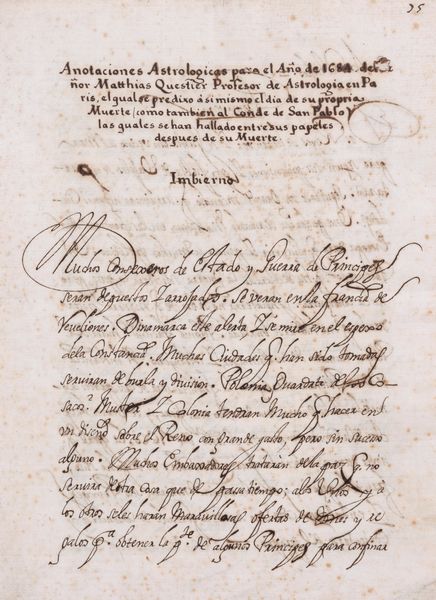 35
Anotaciones Astrologicas para el Año de 1684. del Se
ñor Matthias Questier Profesor de Astrologia en Pa
ris, el qual se predixo á si mismo el dia de su propria
Muerte, como tambien al Conde de San Pablo y
las quales se han hallado entre sus papeles
despues de su Muerte
Imbierno
Muchos Consejeros de Estado y Guerra de Principes
seran depuestos Zarrosados. Se veran en la francia de
Reveliones. Dinamarca esté alerta, Z se mire en el espexo
de la Constancia. Muchas Ciudades q. han sido tomadas
serviran de burla y division. Polonia Guardate de los Co
sacos. Muster, Z Colonia tendran Mucho q hacer en
un diseño sobre el Reno con grande gasto, pero sin suceso
alguno. Muchos Embaxadores trataran de la paz q. no
servira de otra cosa que de gastar tiempo; a los Unos y a
los otros seles haran Maravillosas ofertas de dones y re
galos pa. obtener la de algunos Principes para confinar